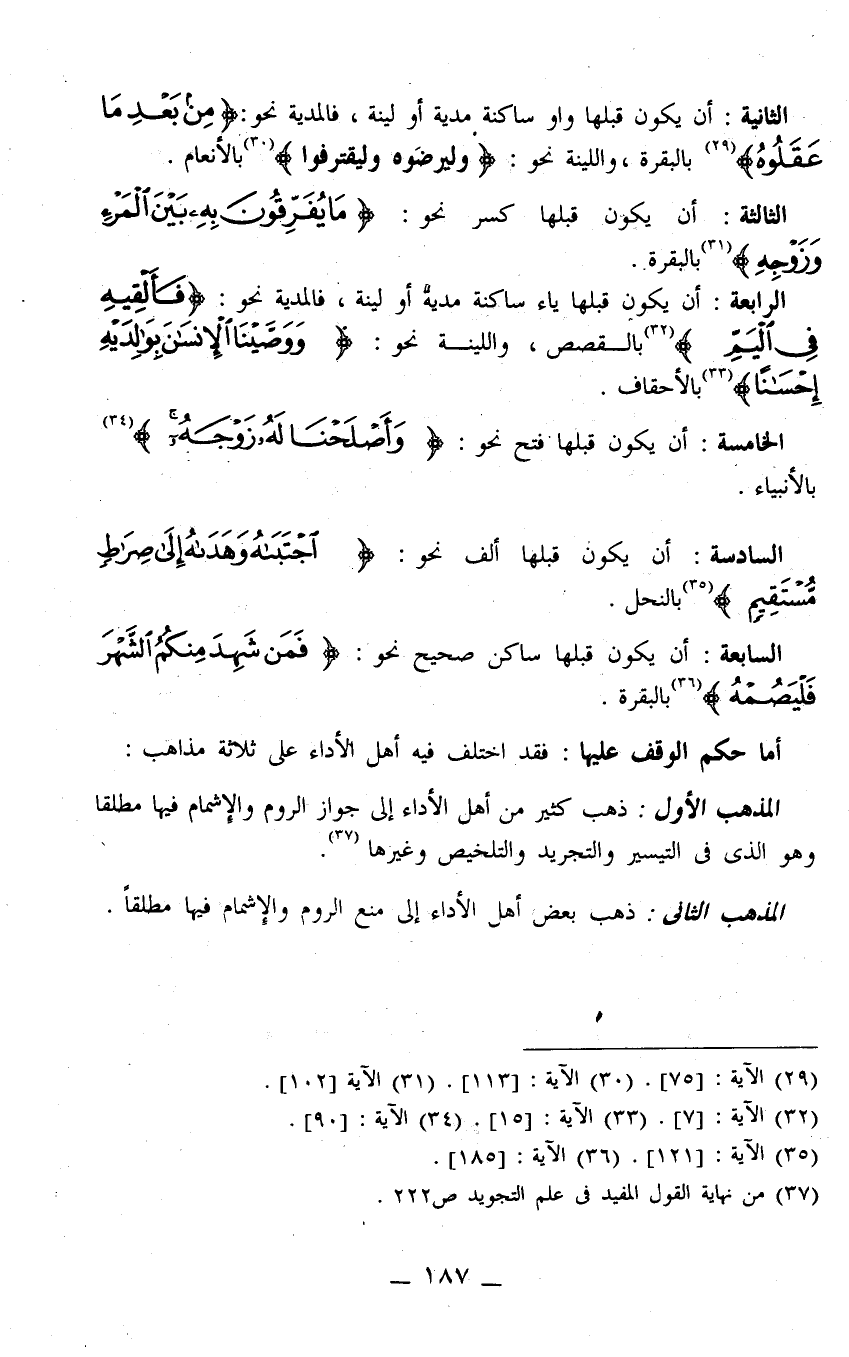 الثانية : أن يكون قبلها واو ساكنة مدية أو لينة ، فالمدية نحو: ﴿ مِنۢ بَعْدِ مَا
عَقَلُوهُ ﴾(٢٩) بالبقرة ، واللينة نحو : ﴿ وليرضَوه وليقترفوا ﴾(٣٠) بالأنعام .
الثالثة : أن يكون قبلها كسر نحو : ﴿ مَا يُفَرِّقُونَ بِهِۦ بَيْنَ ٱلْمَرْءِ
وَزَوْجِهِ ﴾(٣١) بالبقرة .
الرابعة : أن يكون قبلها ياء ساكنة مدية أو لينة ، فالمدية نحو : ﴿ فَأَلْقِيهِ
فِى ٱلْيَمِّ ﴾(٣٢) بالـقصص ، واللينـة نحو : ﴿ وَوَصَّيْنَا ٱلْإِنسَٰنَ بِوَٰلِدَيْهِ
إِحْسَٰنًا ﴾(٣٣) بالأحقاف .
الخامسة : أن يكون قبلها فتح نحو : ﴿ وَأَصْلَحْنَا لَهُۥ زَوْجَهُۥٓ ۚ ﴾(٣٤)
بالأنبياء .
السادسة : أن يكون قبلها ألف نحو : ﴿ ٱجْتَبَىٰهُ وَهَدَىٰهُ إِلَىٰ صِرَٰطٍ
مُّسْتَقِيمٍ ﴾(٣٥) بالنحل .
السابعة : أن يكون قبلها ساكن صحيح نحو : ﴿ فَمَن شَهِدَ مِنكُمُ ٱلشَّهْرَ
فَلْيَصُمْهُ ﴾(٣٦) بالبقرة .
أما حكم الوقف عليها : فقد اختلف فيه أهل الأداء على ثلاثة مذاهب :
المذهب الأول : ذهب كثير من أهل الأداء إلى جواز الروم والإشمام فيها مطلقا
وهو الذى فى التيسير والتجريد والتلخيص وغيرها(٣٧) .
المذهب الثانى : ذهب بعض أهل الأداء إلى منع الروم والإشمام فيها مطلقاً .
(٢٩) الآية : [٧٥] . (٣٠) الآية : [١١٣] . (٣١) الآية [١٠٢] .
(٣٢) الآية : [٧] . (٣٣) الآية : [١٥] . (٣٤) الآية : [٩٠] .
(٣٥) الآية : [١٢١] . (٣٦) الآية : [١٨٥] .
(٣٧) من نهاية القول المفيد فى علم التجويد ص٢٢٢ .
— ١٨٧ —